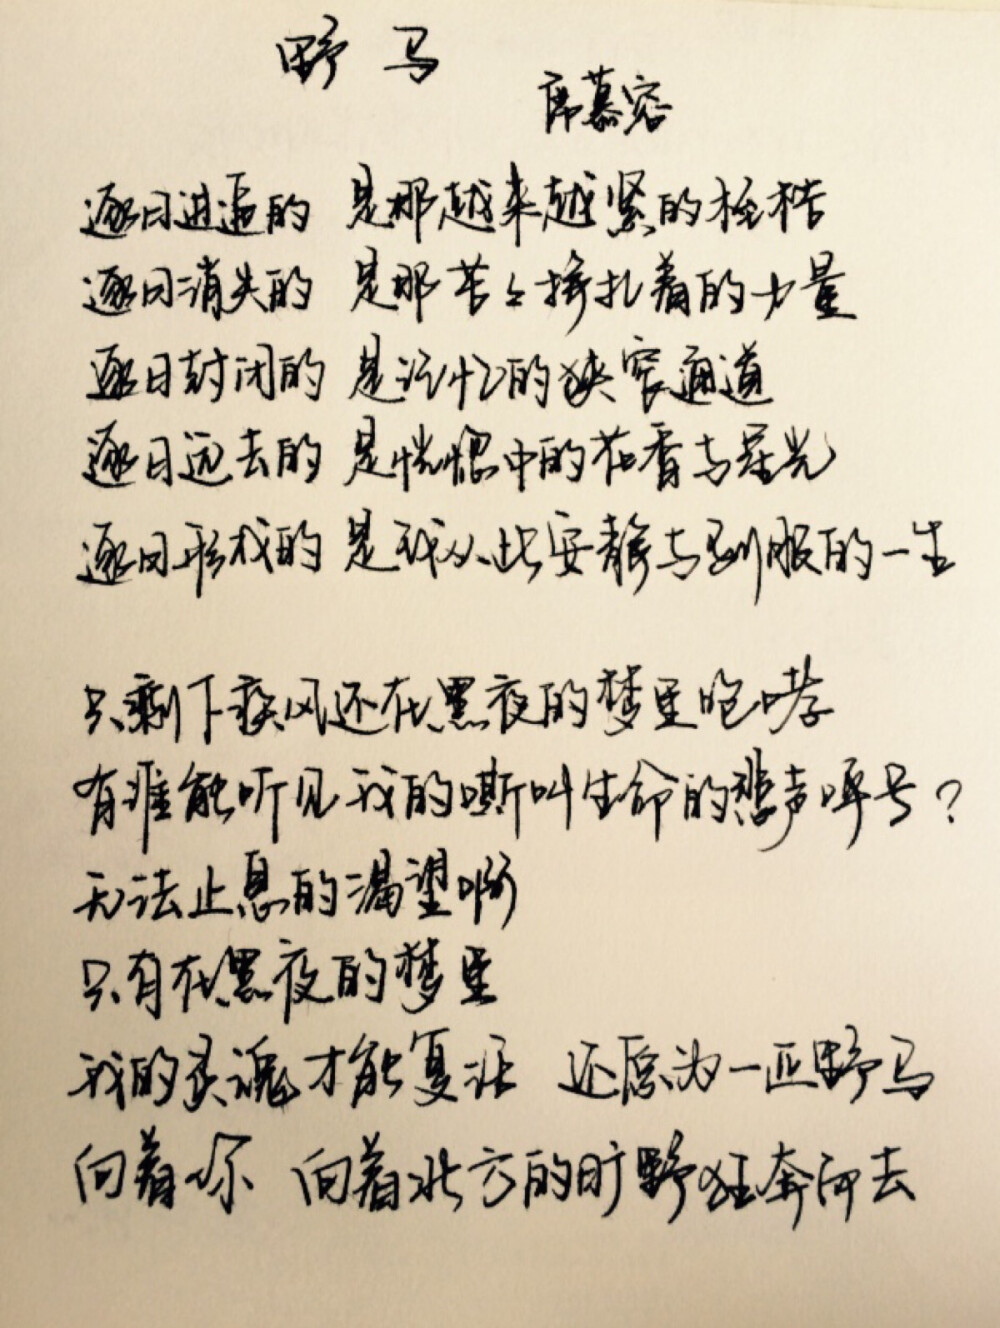 野马
席慕容
逐日进逼的 是那越来越紧的桎梏
逐日消失的 是那苦苦挣扎着的力量
逐日封闭的 是记忆的狭窄通道
逐日远去的 是恍惚中的花香与星光
逐日形成的 是我从此安静与驯服的一生
只剩下疾风还在黑夜的梦里咆哮
有谁能听见我的嘶叫生命的悲声呼号?
无法止息的渴望啊
只有在黑夜的梦里
我的灵魂才能复活 还原为一匹野马
向着你 向着北方的旷野狂奔而去